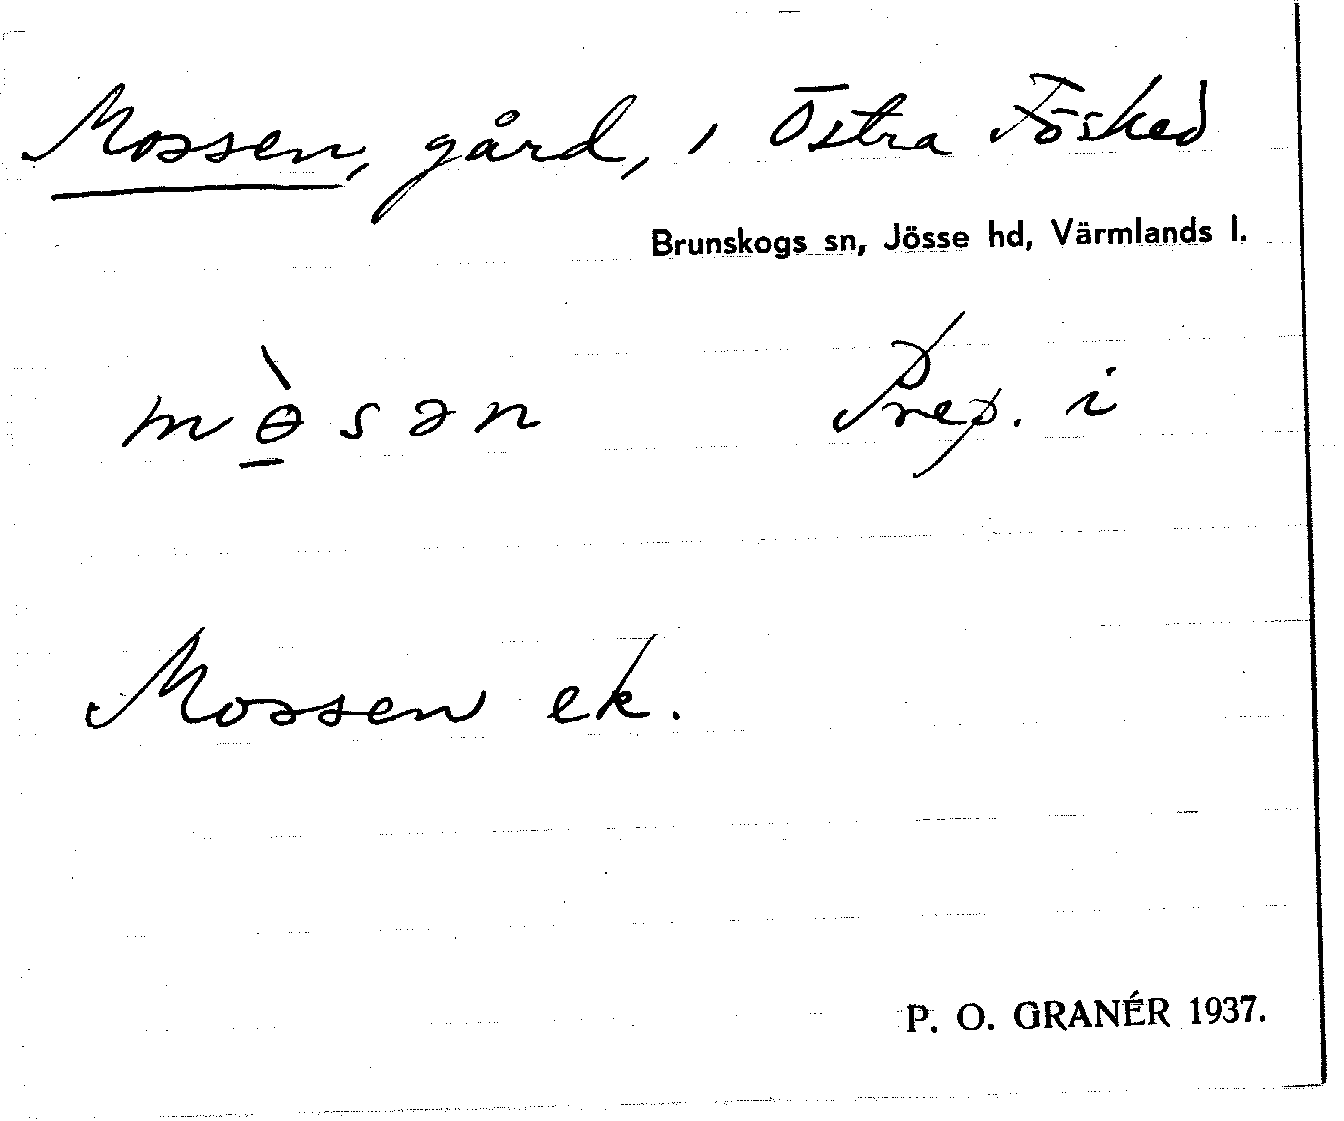 Mossen, gård, i Östra Fösked
Brunskogs sn, Jösse hd, Värmlands l.
mɵ̱̀sən Prep. i
Mossen ek.
P. O. GRANÉR 1937.